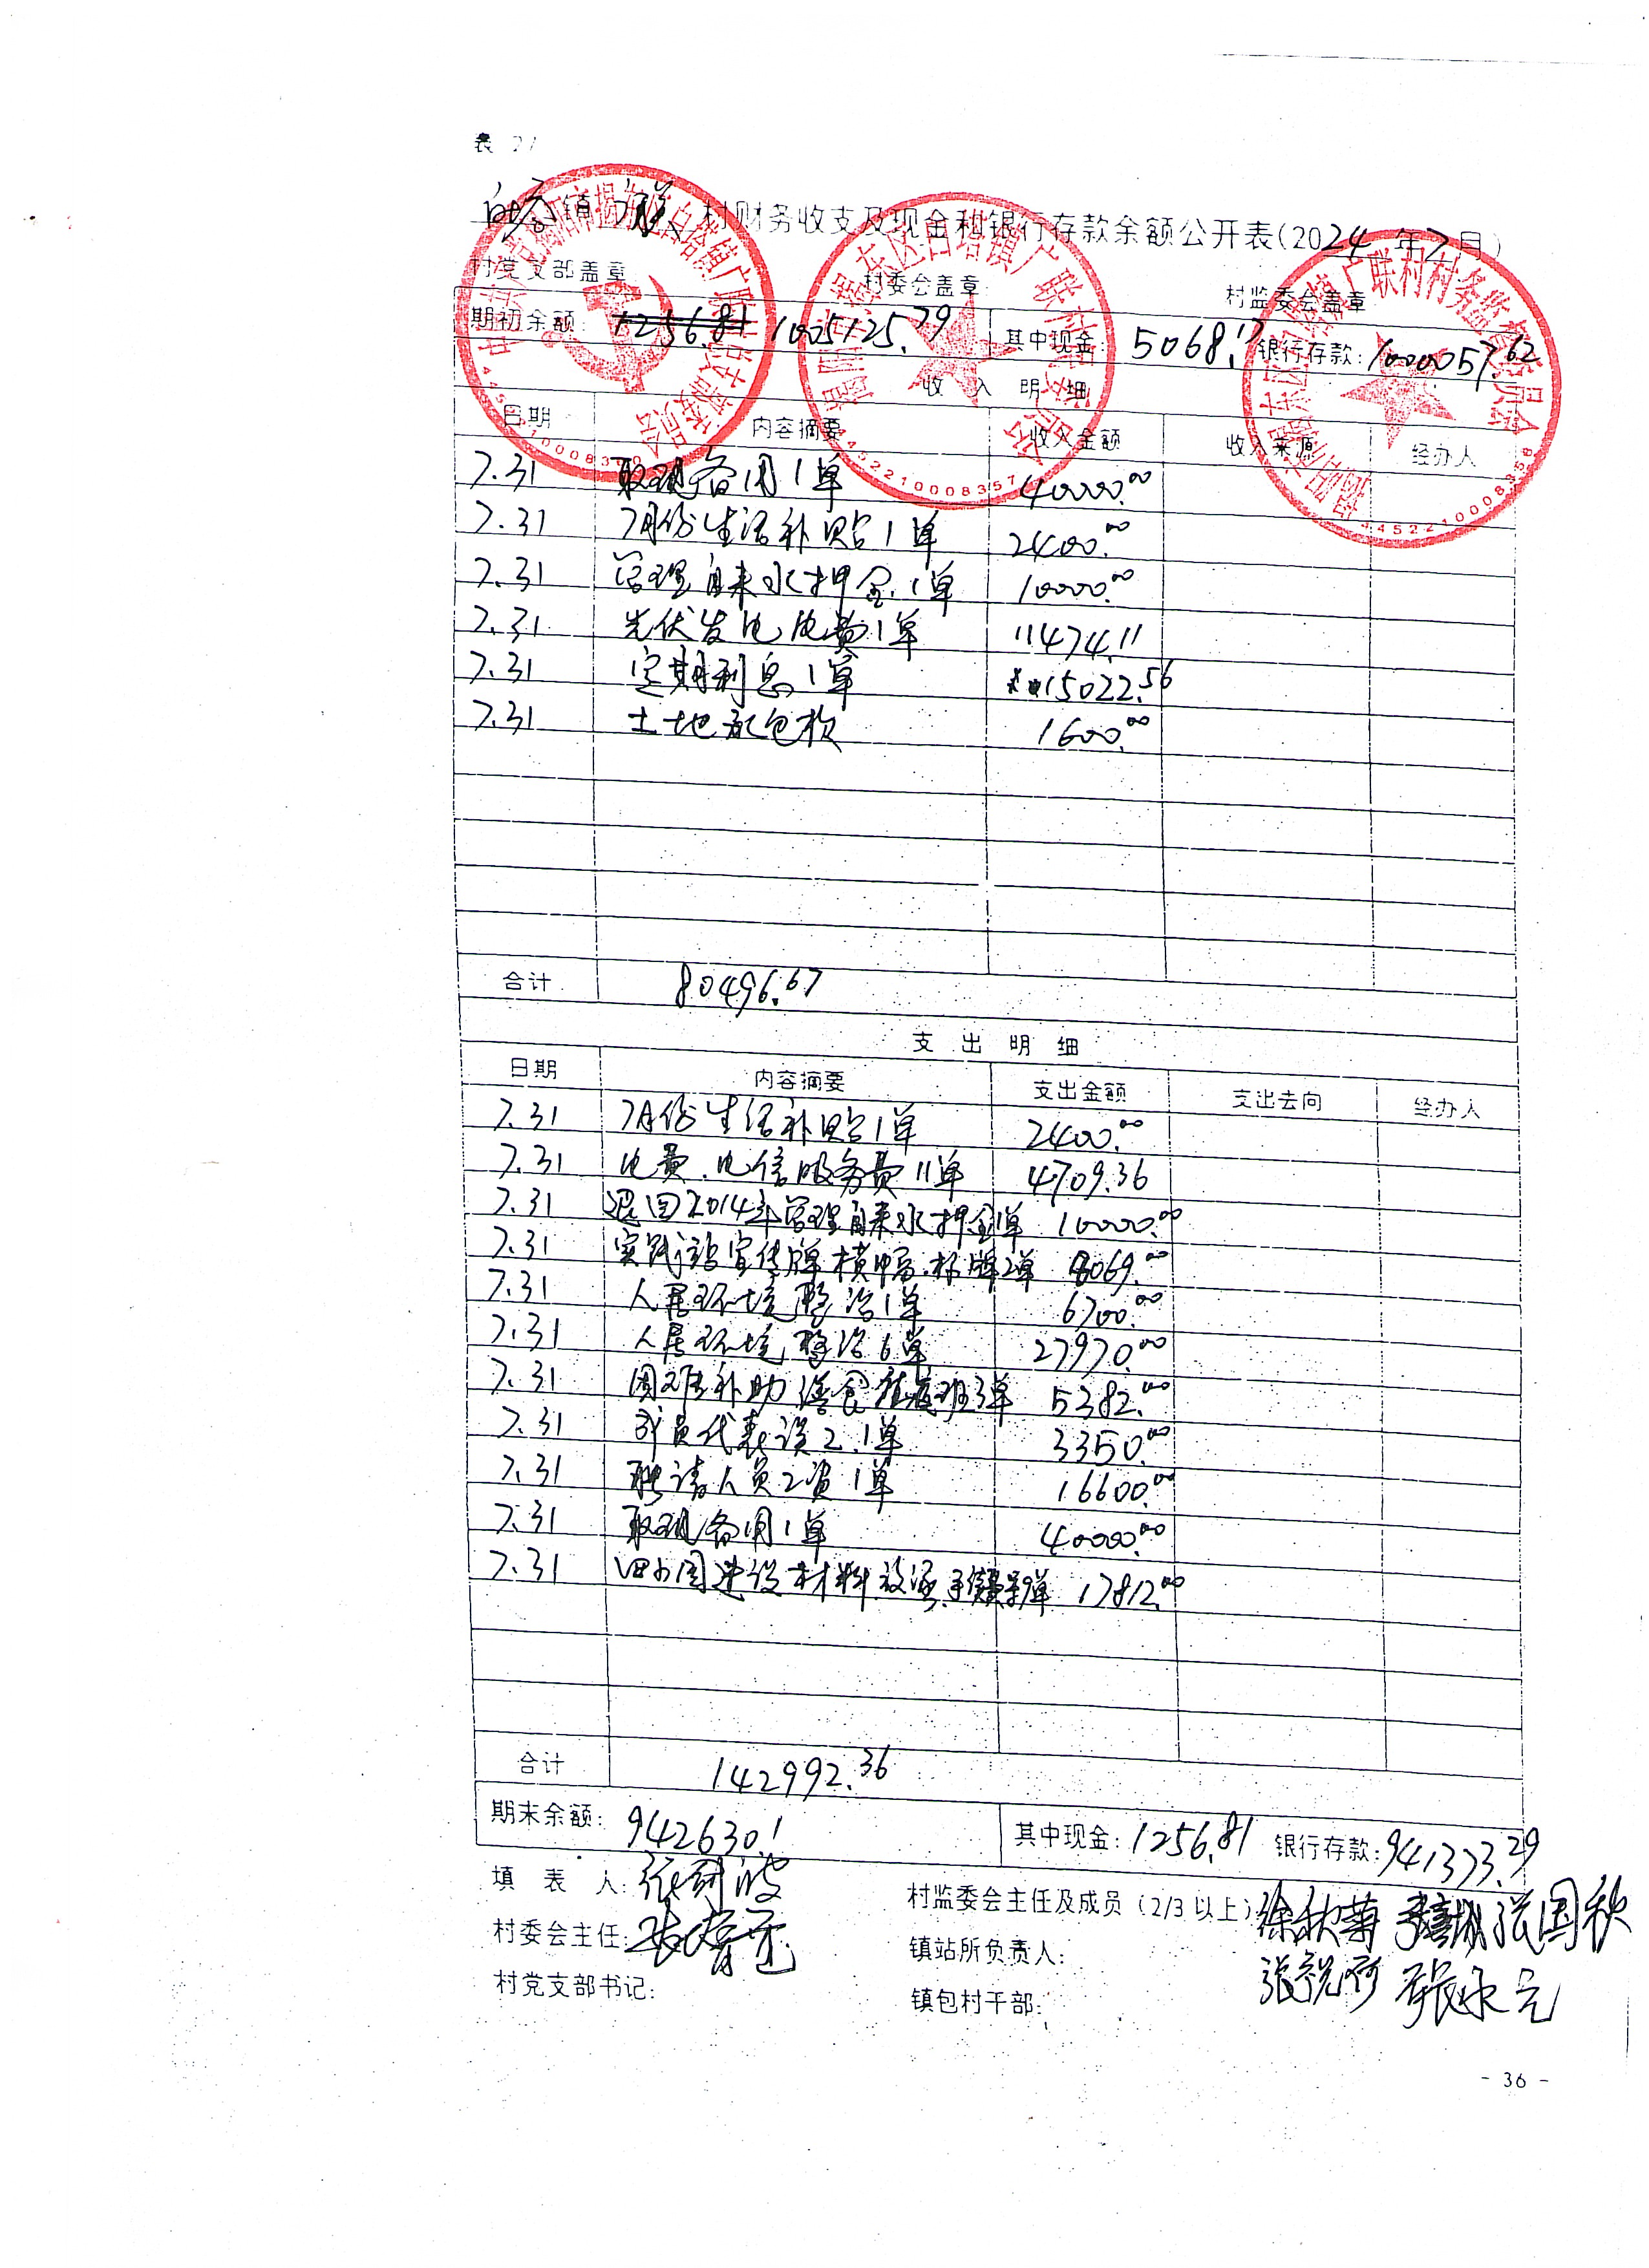 表 2/
白塔镇广联村财务收支及现金和银行存款余额公开表(2024年7月)
村党支部盖章 村委会盖章 村监委会盖章
期初余额: 1256.81 1005125.79 其中现金: 5068.17 银行存款: 1000057.62
收 入 明 细
日期 内容摘要 收入金额 收入来源 经办人
7.31 取现备用1单 40000.00
7.31 7月份生活补贴1单 2400.00
7.31 管理自来水押金1单 10000.00
7.31 光伏发电电费1单 11474.11
7.31 定期利息1单 15022.56
7.31 土地承包款 1600.00
合计 80496.67
支 出 明 细
日期 内容摘要 支出金额 支出去向 经办人
7.31 7月份生活补贴1单 2400.00
7.31 电费.电信服务费11单 4709.36
7.31 退回2014年管理自来水押金1单 10000.00
7.31 实践站宣传牌横幅.标牌2单 8069.00
7.31 人居环境整治1单 6700.00
7.31 人居环境整治6单 27970.00
7.31 困难补助 3单 5382.00
7.31 成员代表误工1单 3350.00
7.31 聘请人员工资1单 16600.00
7.31 取现备用1单 40000.00
7.31 四小园建设材料 17812.00
合计 142992.36
期末余额: 942630.1 其中现金: 1256.81 银行存款: 941373.29
填 表 人:
村监委会主任及成员(2/3以上) 徐秋菊 张国秋
村委会主任:
镇站所负责人: 张锐河 张永元
村党支部书记:
镇包村干部:
- 36 -